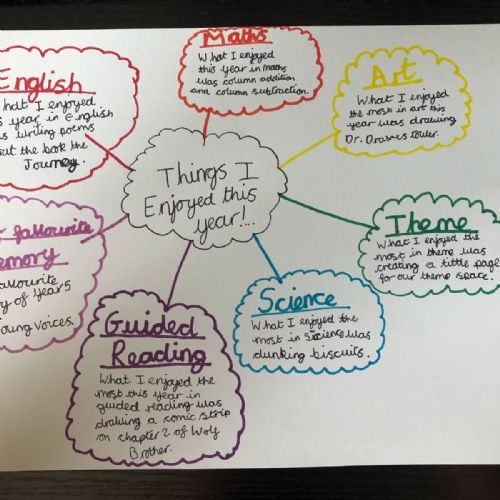 Things I
Enjoyed this
year!...
English
What I enjoyed
year in English
writing poems
the book the
Journey.
Maths
What I enjoyed
this year in maths
was column addition
and column subtraction.
Art
What I enjoyed
the most in art this
year was drawing
Dr. Draxes tower.
Theme
What I enjoyed the
most in theme was
creating a title page
for our theme space.
Science
What I enjoyed the
most in Science was
dunking biscuits.
Guided
Reading
What I enjoyed the
most this year in
guided reading was
drawing a comic strip
on chapter 2 of Wolf
Brother.
favourite
memory
favourite
of year 5
Young Voices.